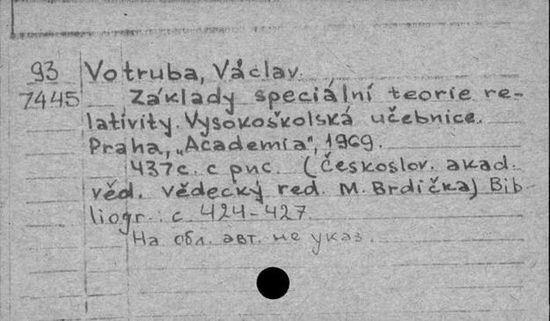 93 Votruba, Václav.
7445 Základy speciální teorie re-
lativity. Vysokoškolská učebnice.
Praha, „Academia", 1969.
437с. с рис. (Českoslov. akad.
věd. Vědecký red. M. Brdička) Bib-
liogr.: с. 424-427.
На обл. авт. не указ.